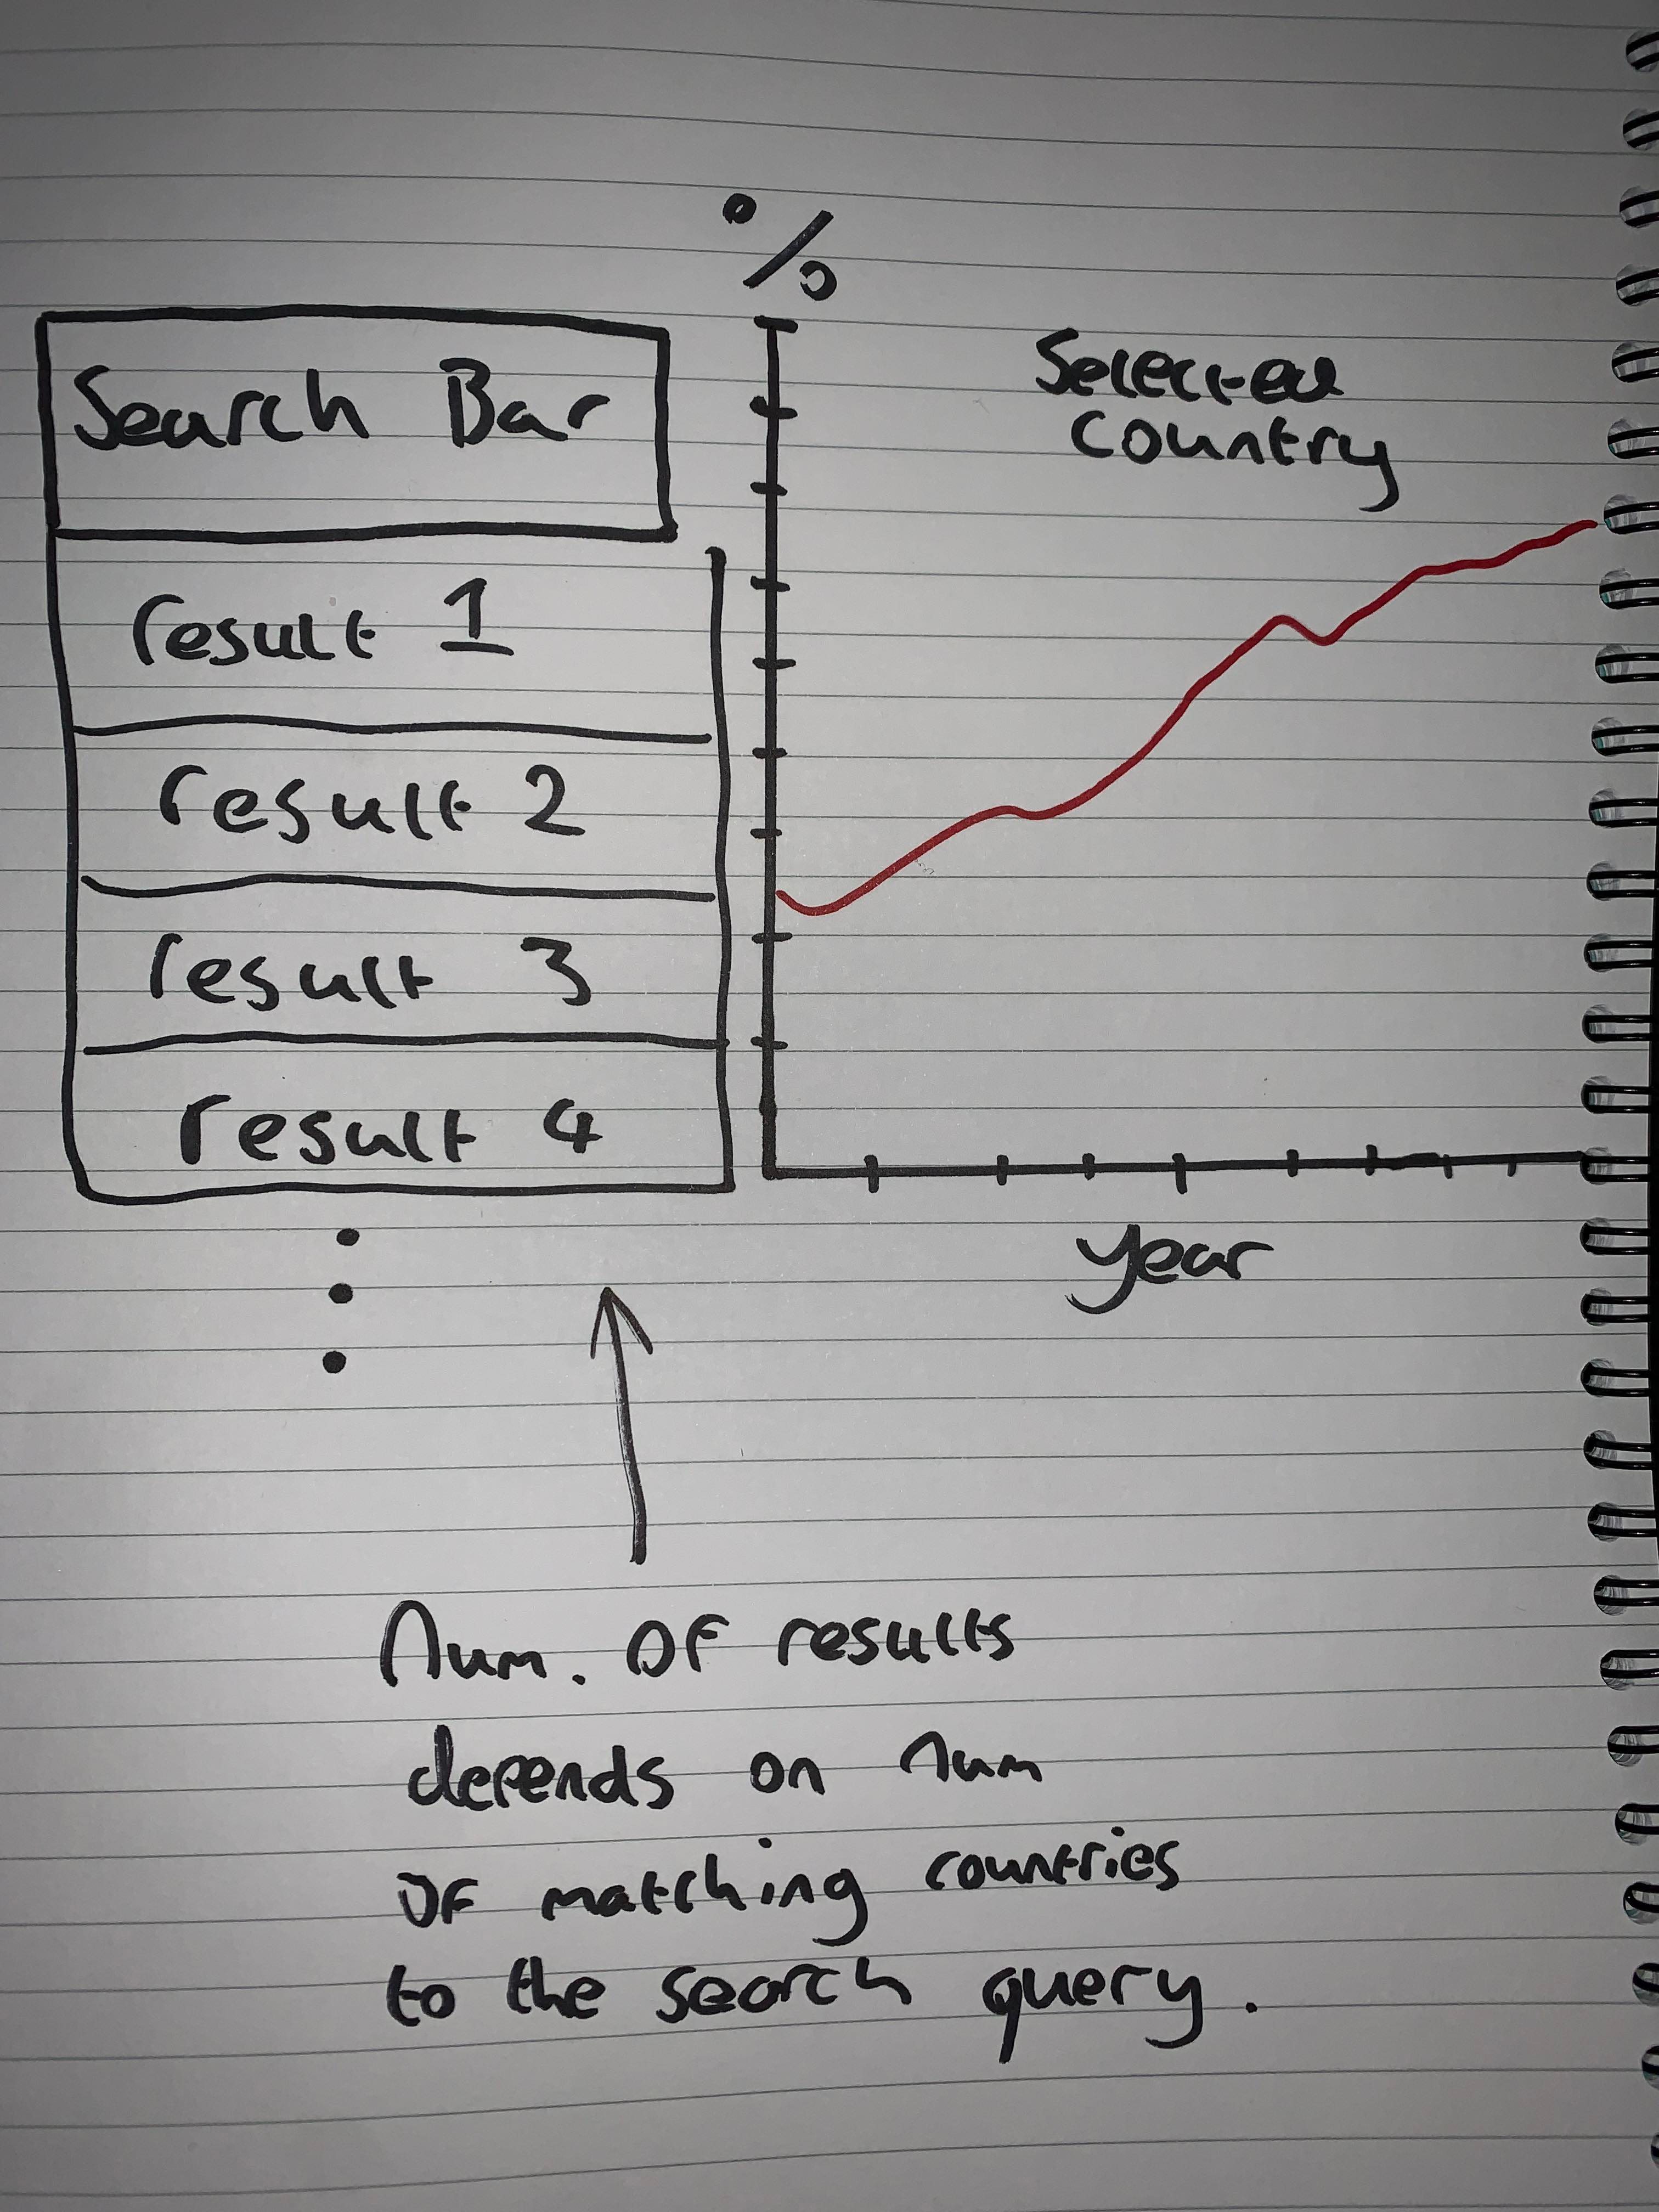 %
Search Bar
result 1
result 2
result 3
result 4
Selected
Country
year
Num. OF results
depends on num
OF matching countries
to the search query.